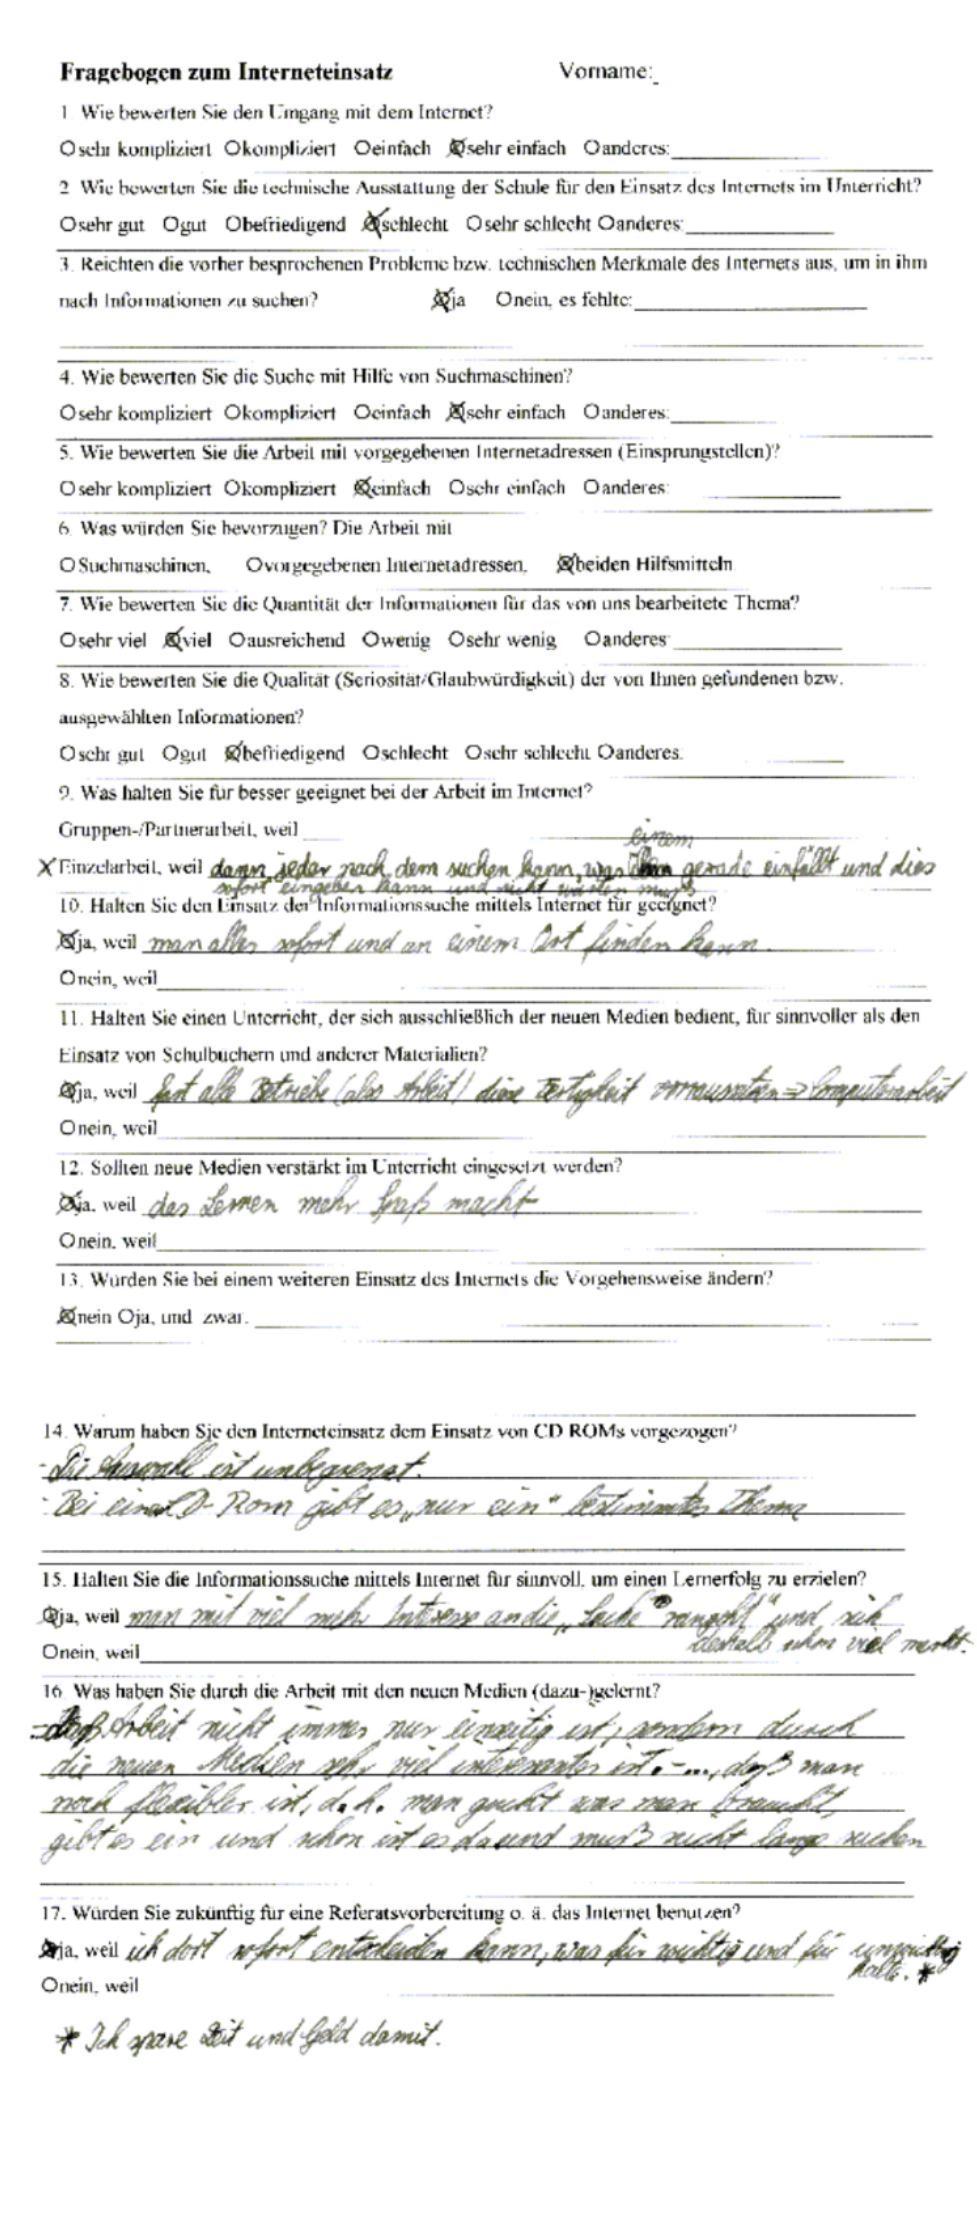 Fragebogen zum Interneteinsatz Vorname:
1 Wie bewerten Sie den Umgang mit dem Internet?
O sehr kompliziert Okompliziert Oeinfach Osehr einfach Oanderes:
2 Wie bewerten Sie die technische Ausstattung der Schule für den Einsatz des Internets im Unterricht?
Osehr gut Ogut Obefriedigend Oschlecht Osehr schlecht Oanderes:
3. Reichten die vorher besprochenen Probleme bzw. technischen Merkmale des Internets aus, um in ihm
nach Informationen zu suchen? Oja Onein, es fehlte:
4. Wie bewerten Sie die Suche mit Hilfe von Suchmaschinen?
Osehr kompliziert Okompliziert Oeinfach Osehr einfach Oanderes:
5. Wie bewerten Sie die Arbeit mit vorgegebenen Internetadressen (Einsprungstellen)?
Osehr kompliziert Okompliziert Oeinfach Osehr einfach Oanderes:
6. Was würden Sie bevorzugen? Die Arbeit mit
OSuchmaschinen, Ovorgegebenen Internetadressen, Obeiden Hilfsmitteln
7. Wie bewerten Sie die Quantität der Informationen für das von uns bearbeitete Thema?
Osehr viel Oviel Oausreichend Owenig Osehr wenig Oanderes
8. Wie bewerten Sie die Qualität (Seriosität/Glaubwürdigkeit) der von Ihnen gefundenen bzw.
ausgewählten Informationen?
Osehr gut Ogut Obefriedigend Oschlecht Osehr schlecht Oanderes:
9. Was halten Sie für besser geeignet bei der Arbeit im Internet?
Gruppen-/Partnerarbeit, weil
einem
X Einzelarbeit, weil dann jeder nach dem suchen kann, was gerade einfällt und dies
sofort eingeben kann und nicht warten muß
10. Halten Sie den Einsatz der Informationssuche mittels Internet für geeignet?
Oja, weil man alles sofort und an einem Ort finden kann.
Onein, weil
11. Halten Sie einen Unterricht, der sich ausschließlich der neuen Medien bedient, für sinnvoller als den
Einsatz von Schulbüchern und anderer Materialien?
Oja, weil fast alle Betriebe (also Arbeit) diese Fertigkeit voraussetzen => Computerarbeit
Onein, weil
12. Sollten neue Medien verstärkt im Unterricht eingesetzt werden?
Oja, weil das Lernen mehr Spaß macht
Onein, weil
13. Würden Sie bei einem weiteren Einsatz des Internets die Vorgehensweise ändern?
Onein Oja, und zwar:
14. Warum haben Sie den Interneteinsatz dem Einsatz von CD ROMs vorgezogen?
- Die Auswahl ist unbegrenzt.
- Bei einer CD-Rom gibt es „nur ein“ bestimmtes Thema
15. Halten Sie die Informationssuche mittels Internet für sinnvoll, um einen Lernerfolg zu erzielen?
Oja, weil man mit viel mehr Interesse an die „Sache“ rangeht und sich
deshalb schon viel merkt.
Onein, weil
16. Was haben Sie durch die Arbeit mit den neuen Medien (dazu-)gelernt?
- daß Arbeit nicht immer nur einseitig ist, sondern durch
die neuen Medien sehr viel interessanter ist. - ..., daß man
noch flexibler ist, d.h. man guckt was man braucht,
gibt es ein und schon ist es da und muß nicht lange suchen
17. Würden Sie zukünftig für eine Referatsvorbereitung o. ä. das Internet benutzen?
Oja, weil ich dort sofort entscheiden kann, was für wichtig und für unwichtig
halte. *
Onein, weil
* Ich spare Zeit und Geld damit.